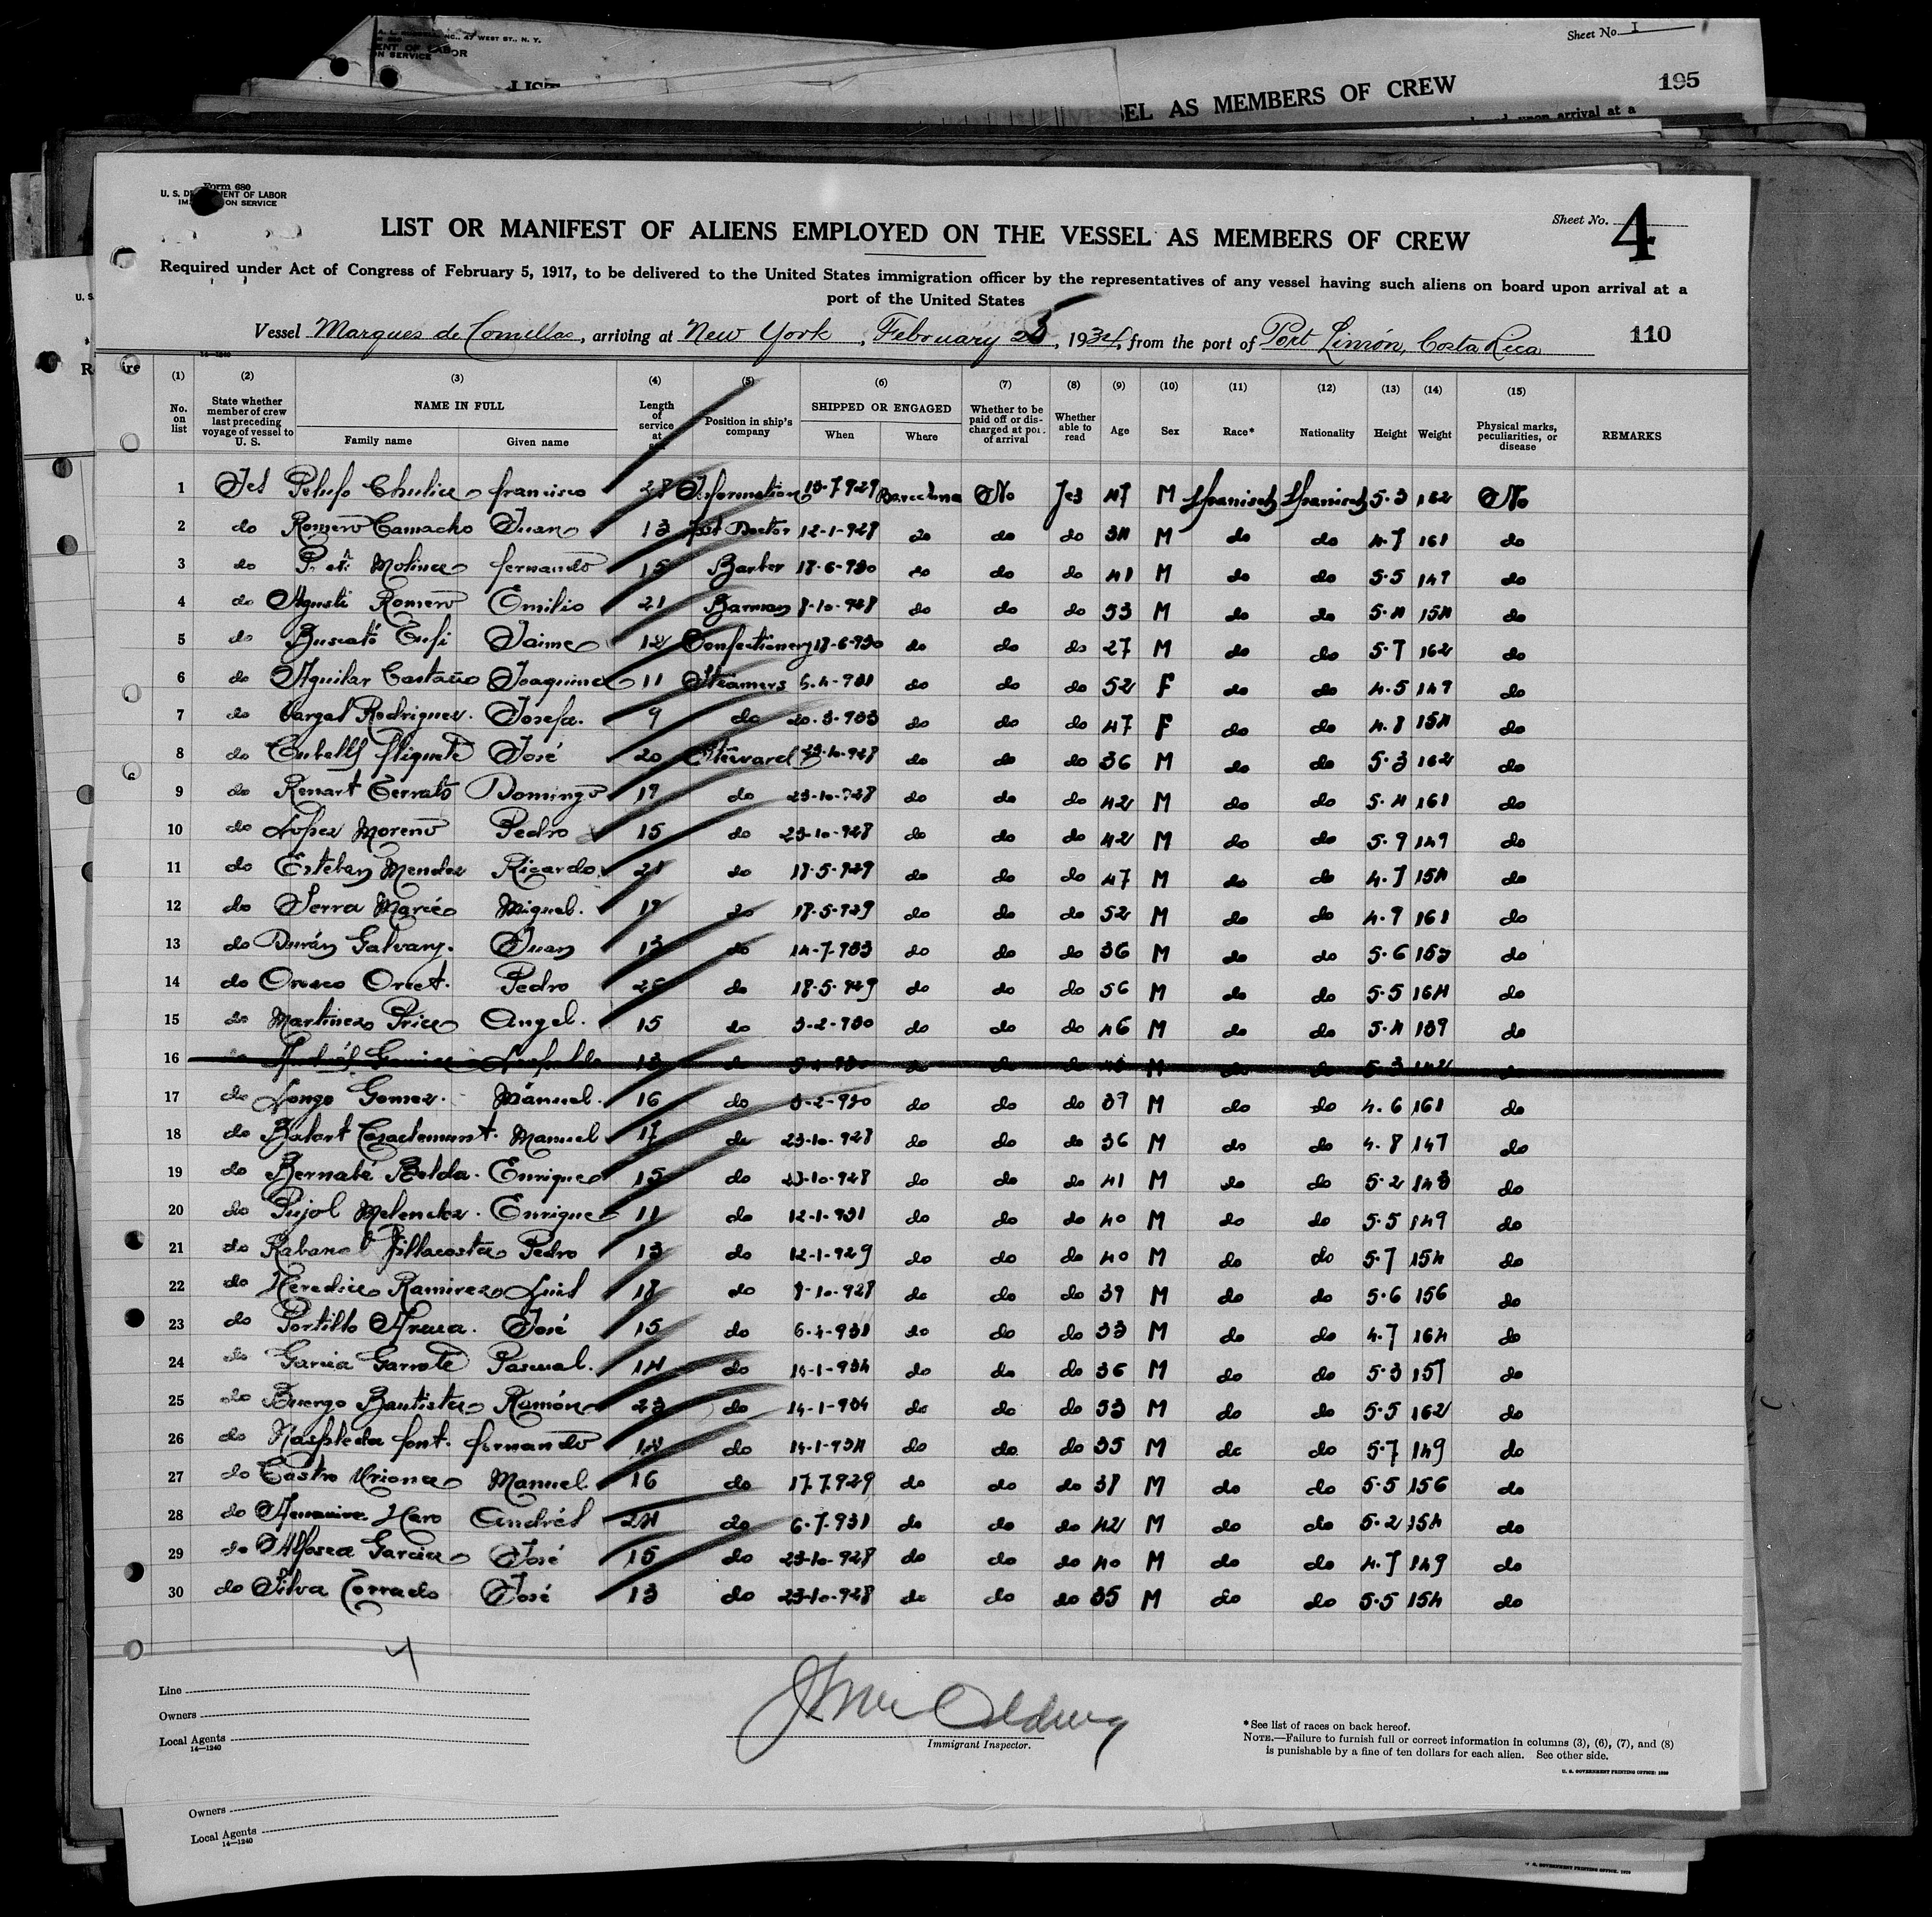 Sheet No. I
A. L. RUSSELL, INC., 47 WEST ST., N. Y.
195
LIST
VESSEL AS MEMBERS OF CREW
upon arrival at a
Form 680
U. S. DEPARTMENT OF LABOR
IMMIGRATION SERVICE
Sheet No. 4
LIST OR MANIFEST OF ALIENS EMPLOYED ON THE VESSEL AS MEMBERS OF CREW
Required under Act of Congress of February 5, 1917, to be delivered to the United States immigration officer by the representatives of any vessel having such aliens on board upon arrival at a
port of the United States
Vessel Marques de Comillas, arriving at New York, February 25, 1934, from the port of Port Limón, Costa Rica 110
14—1240
(1) (2) (3) (4) (5) (6) (7) (8) (9) (10) (11) (12) (13) (14) (15)
No. on list State whether member of crew last preceding voyage of vessel to U. S. NAME IN FULL Family name Given name Length of service at Position in ship's company SHIPPED OR ENGAGED When Where Whether to be paid off or discharged at port of arrival Whether able to read Age Sex Race* Nationality Height Weight Physical marks, peculiarities, or disease REMARKS
1 Jes Pelufo Chulia francisco 28 Information 13-7-929 Barcelona No Jes 47 M Spanisch Spanisch 5.3 162 No
2 do Romero Camacho Juan 13 Doctor 12-1-928 do do do 34 M do do 4.7 161 do
3 do Molina fernando 15 Barber 18-6-930 do do do 41 M do do 5.5 149 do
4 do Agusti Romero Emilio 21 Barman 8-10-928 do do do 53 M do do 5.4 154 do
5 do Buscató Jaime 12 Confectionery 18-6-930 do do do 27 M do do 5.7 162 do
6 do Aguilar Castaño Joaquina 11 Steamers 6-4-931 do do do 52 F do do 4.5 149 do
7 do Vargas Rodriguez. Josefa. 9 do 20-3-933 do do do 47 F do do 4.8 154 do
8 do Cubells José 20 Steward 23-10-928 do do do 36 M do do 5.3 162 do
9 do Renart Cerrato Domingo 19 do 23-10-928 do do do 42 M do do 5.4 161 do
10 do López Moreno Pedro 15 do 23-10-928 do do do 42 M do do 5.9 149 do
11 do Esteban Mendez Ricardo. 21 do 18-5-929 do do do 47 M do do 4.7 154 do
12 do Serra Miguel. 19 do 18-5-929 do do do 52 M do do 4.9 161 do
13 do Durán Galvany. Juan 13 do 14-7-933 do do do 36 M do do 5.6 157 do
14 do Orozco Pedro do 18-5-929 do do do 56 M do do 5.5 164 do
15 do Martinez Angel. 15 do 3-2-930 do do do 46 M do do 5.4 139 do
16 13 do do do M do do 5.3 142 do
17 do Longo Gomez. Manuel. 16 do 3-2-930 do do do 39 M do do 4.6 161 do
18 do Casademunt. Manuel 17 do 23-10-928 do do do 36 M do do 4.8 147 do
19 do Bernabé Belda. Enrique 15 do 23-10-928 do do do 41 M do do 5.2 143 do
20 do Pujol Melendez. Enrique 11 do 12-1-931 do do do 40 M do do 5.5 149 do
21 do Rabanal Villacosta Pedro 13 do 12-1-929 do do do 40 M do do 5.7 154 do
22 do Heredia Ramirez Luis 18 do 8-10-928 do do do 39 M do do 5.6 156 do
23 do Portillo José 15 do 6-4-931 do do do 33 M do do 4.7 164 do
24 do Garcia Garrote Pascual. 14 do 14-1-934 do do do 36 M do do 5.3 157 do
25 do Buergo Bautista Ramón 23 do 14-1-934 do do do 53 M do do 5.5 162 do
26 do Naspleda font. fernando 12 do 14-1-934 do do do 35 M do do 5.7 149 do
27 do Castro Uriona Manuel 16 do 17-7-929 do do do 38 M do do 5.5 156 do
28 do Haro Andrés 24 do 6-7-931 do do do 42 M do do 5.2 154 do
29 do Alfosea Garcia José 15 do 23-10-928 do do do 40 M do do 4.7 149 do
30 do Silva José 13 do 23-10-928 do do do 35 M do do 5.5 154 do
4
Line
Owners
Local Agents
14—1240
Immigrant Inspector.
*See list of races on back hereof.
NOTE.—Failure to furnish full or correct information in columns (3), (6), (7), and (8)
is punishable by a fine of ten dollars for each alien. See other side.
U. S. GOVERNMENT PRINTING OFFICE: 1930
Owners
Local Agents
14—1240